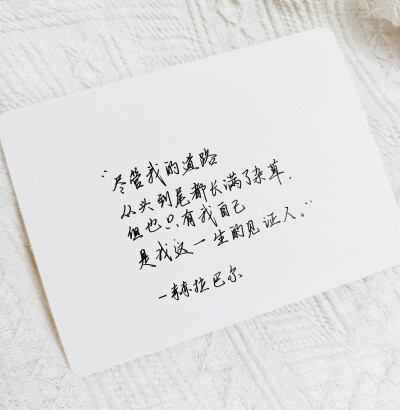 “尽管我的道路
从头到尾都长满了杂草,
但也只有我自己
是我这一生的见证人。”
—赫拉巴尔